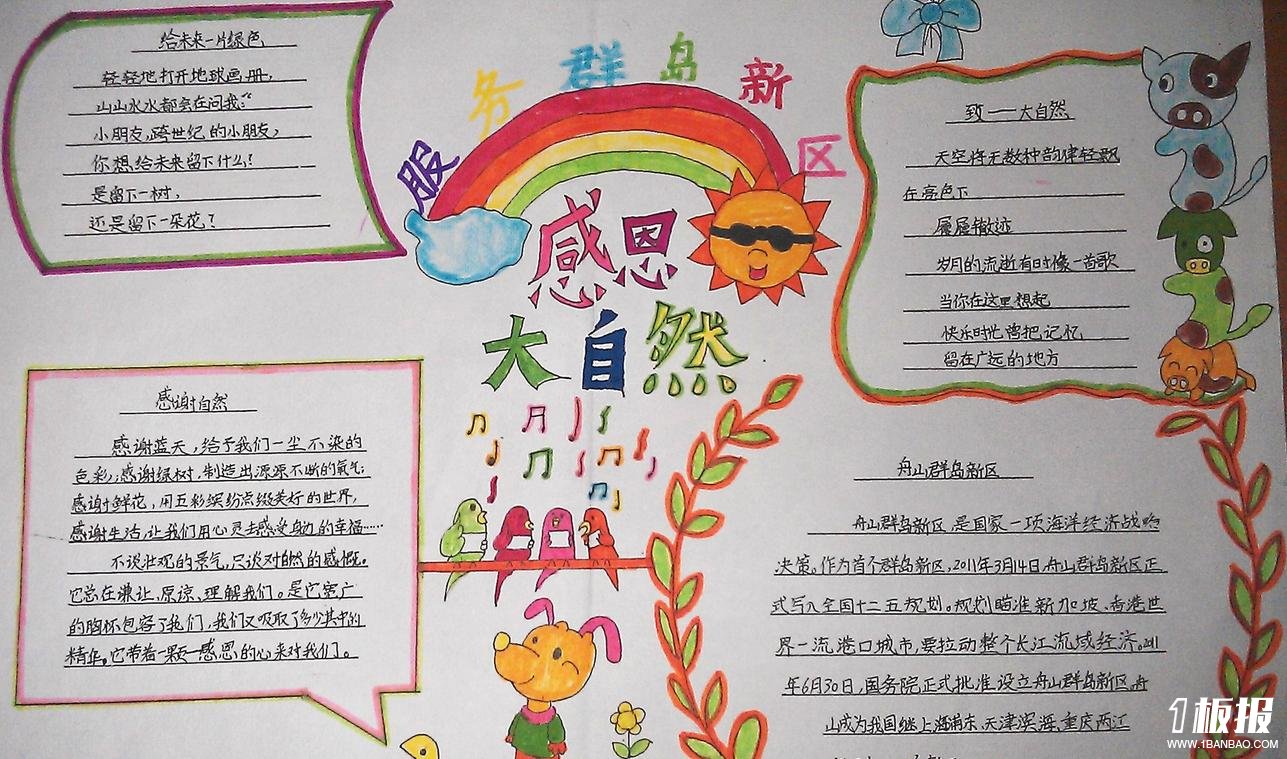 服务群岛新区
感恩
大自然
给未来一片绿色
轻轻地打开地球画册，
山山水水都会在问我：“
小朋友，跨世纪的小朋友，
你想给未来留下什么？
是留下一树，
还是留下一朵花？
致——大自然
天空将无数种韵律轻飘
在亮色下
履履辙迹
岁月的流逝有时像一首歌
当你在这里想起
快乐时忙曾把记忆
留在广远的地方
感谢自然
感谢蓝天，给予我们一尘不染的
色彩；感谢绿树，制造出源源不断的氧气；
感谢鲜花，用五彩缤纷点缀美好的世界，
感谢生活，让我们用心灵去感受身边的幸福……
不谈壮观的景气，只谈对自然的感慨。
它总在谦让、原谅、理解我们。是它宽广
的胸怀包容了我们，我们又吸取了多少其中的
精华。它带着一颗感恩的心来对我们。
舟山群岛新区
舟山群岛新区是国家一项海洋经济战略
决策。作为首个群岛新区，2011年3月14日，舟山群岛新区正
式写入全国十二五规划。规划瞄准新加坡、香港世
界一流港口城市，要拉动整个长江流域经济。2011
年6月30日，国务院正式批准设立舟山群岛新区，舟
山成为我国继上海浦东、天津滨海、重庆两江
1板报
WWW.1BANBAO.COM